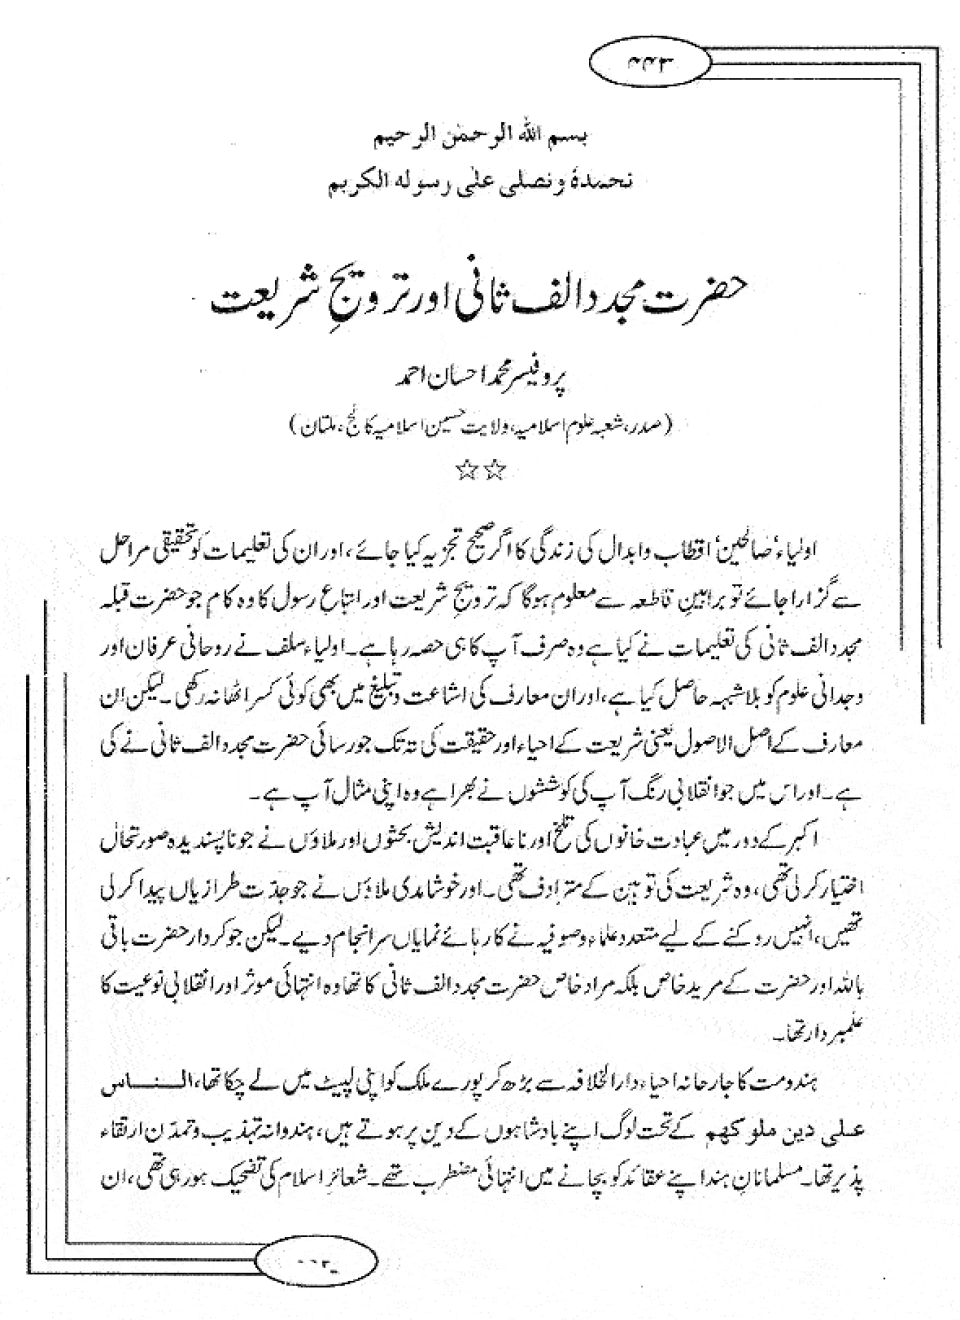 ۴۴۳
بسم اللہ الرحمٰن الرحیم
نحمدہٗ ونصلی علٰی رسولہ الکریم
حضرت مجدد الف ثانی اور ترویجِ شریعت
پروفیسر محمد احسان احمد
(صدر، شعبہ علوم اسلامیہ، ولایت حسین اسلامیہ کالج، ملتان)
☆☆
اولیاء‘ صالحین‘ اقطاب وابدال کی زندگی کا اگر صحیح تجزیہ کیا جائے، اور ان کی تعلیمات کو تحقیقی مراحل
سے گزارا جائے تو براہینِ قاطعہ سے معلوم ہوگا کہ ترویجِ شریعت اور اتباع رسول کا وہ کام جو حضرت قبلہ
مجدد الف ثانی کی تعلیمات نے کیا ہے وہ صرف آپ کا ہی حصہ رہا ہے۔ اولیاء سلف نے روحانی عرفان اور
وجدانی علوم کو بلاشبہ حاصل کیا ہے، اور ان معارف کی اشاعت وتبلیغ میں بھی کوئی کسر اٹھا نہ رکھی۔ لیکن اِن
معارف کے اصل الاصول یعنی شریعت کے احیاء اور حقیقت کی تہ تک جو رسائی حضرت مجدد الف ثانی نے کی
ہے۔ اور اس میں جو انقلابی رنگ آپ کی کوششوں نے بھرا ہے وہ اپنی مثال آپ ہے۔
اکبر کے دور میں عبادت خانوں کی تلخ اور ناعاقبت اندیش بحثوں اور ملاؤں نے جو ناپسندیدہ صورتحال
اختیار کرلی تھی، وہ شریعت کی توہین کے مترادف تھی۔ اور خوشامدی ملاؤں نے جو جدّت طرازیاں پیدا کرلی
تھیں، انہیں روکنے کے لیے متعدد علماء وصوفیہ نے کارہائے نمایاں سرانجام دیے۔ لیکن جو کردار حضرت باقی
باللہ اور حضرت کے مرید خاص بلکہ مراد خاص حضرت مجدد الف ثانی کا تھا وہ انتہائی موثر اور انقلابی نوعیت کا
علمبردار تھا۔
ہندومت کا جارحانہ احیاء دارالخلافہ سے بڑھ کر پورے ملک کو اپنی لپیٹ میں لے چکا تھا، الناس
علی دین ملوکھم کے تحت لوگ اپنے بادشاہوں کے دین پر ہوتے ہیں، ہندوانہ تہذیب وتمدّن ارتقاء
پذیر تھا۔ مسلمانانِ ہند اپنے عقائد کو بچانے میں انتہائی مضطرب تھے۔ شعائرِ اسلام کی تضحیک ہو رہی تھی، ان